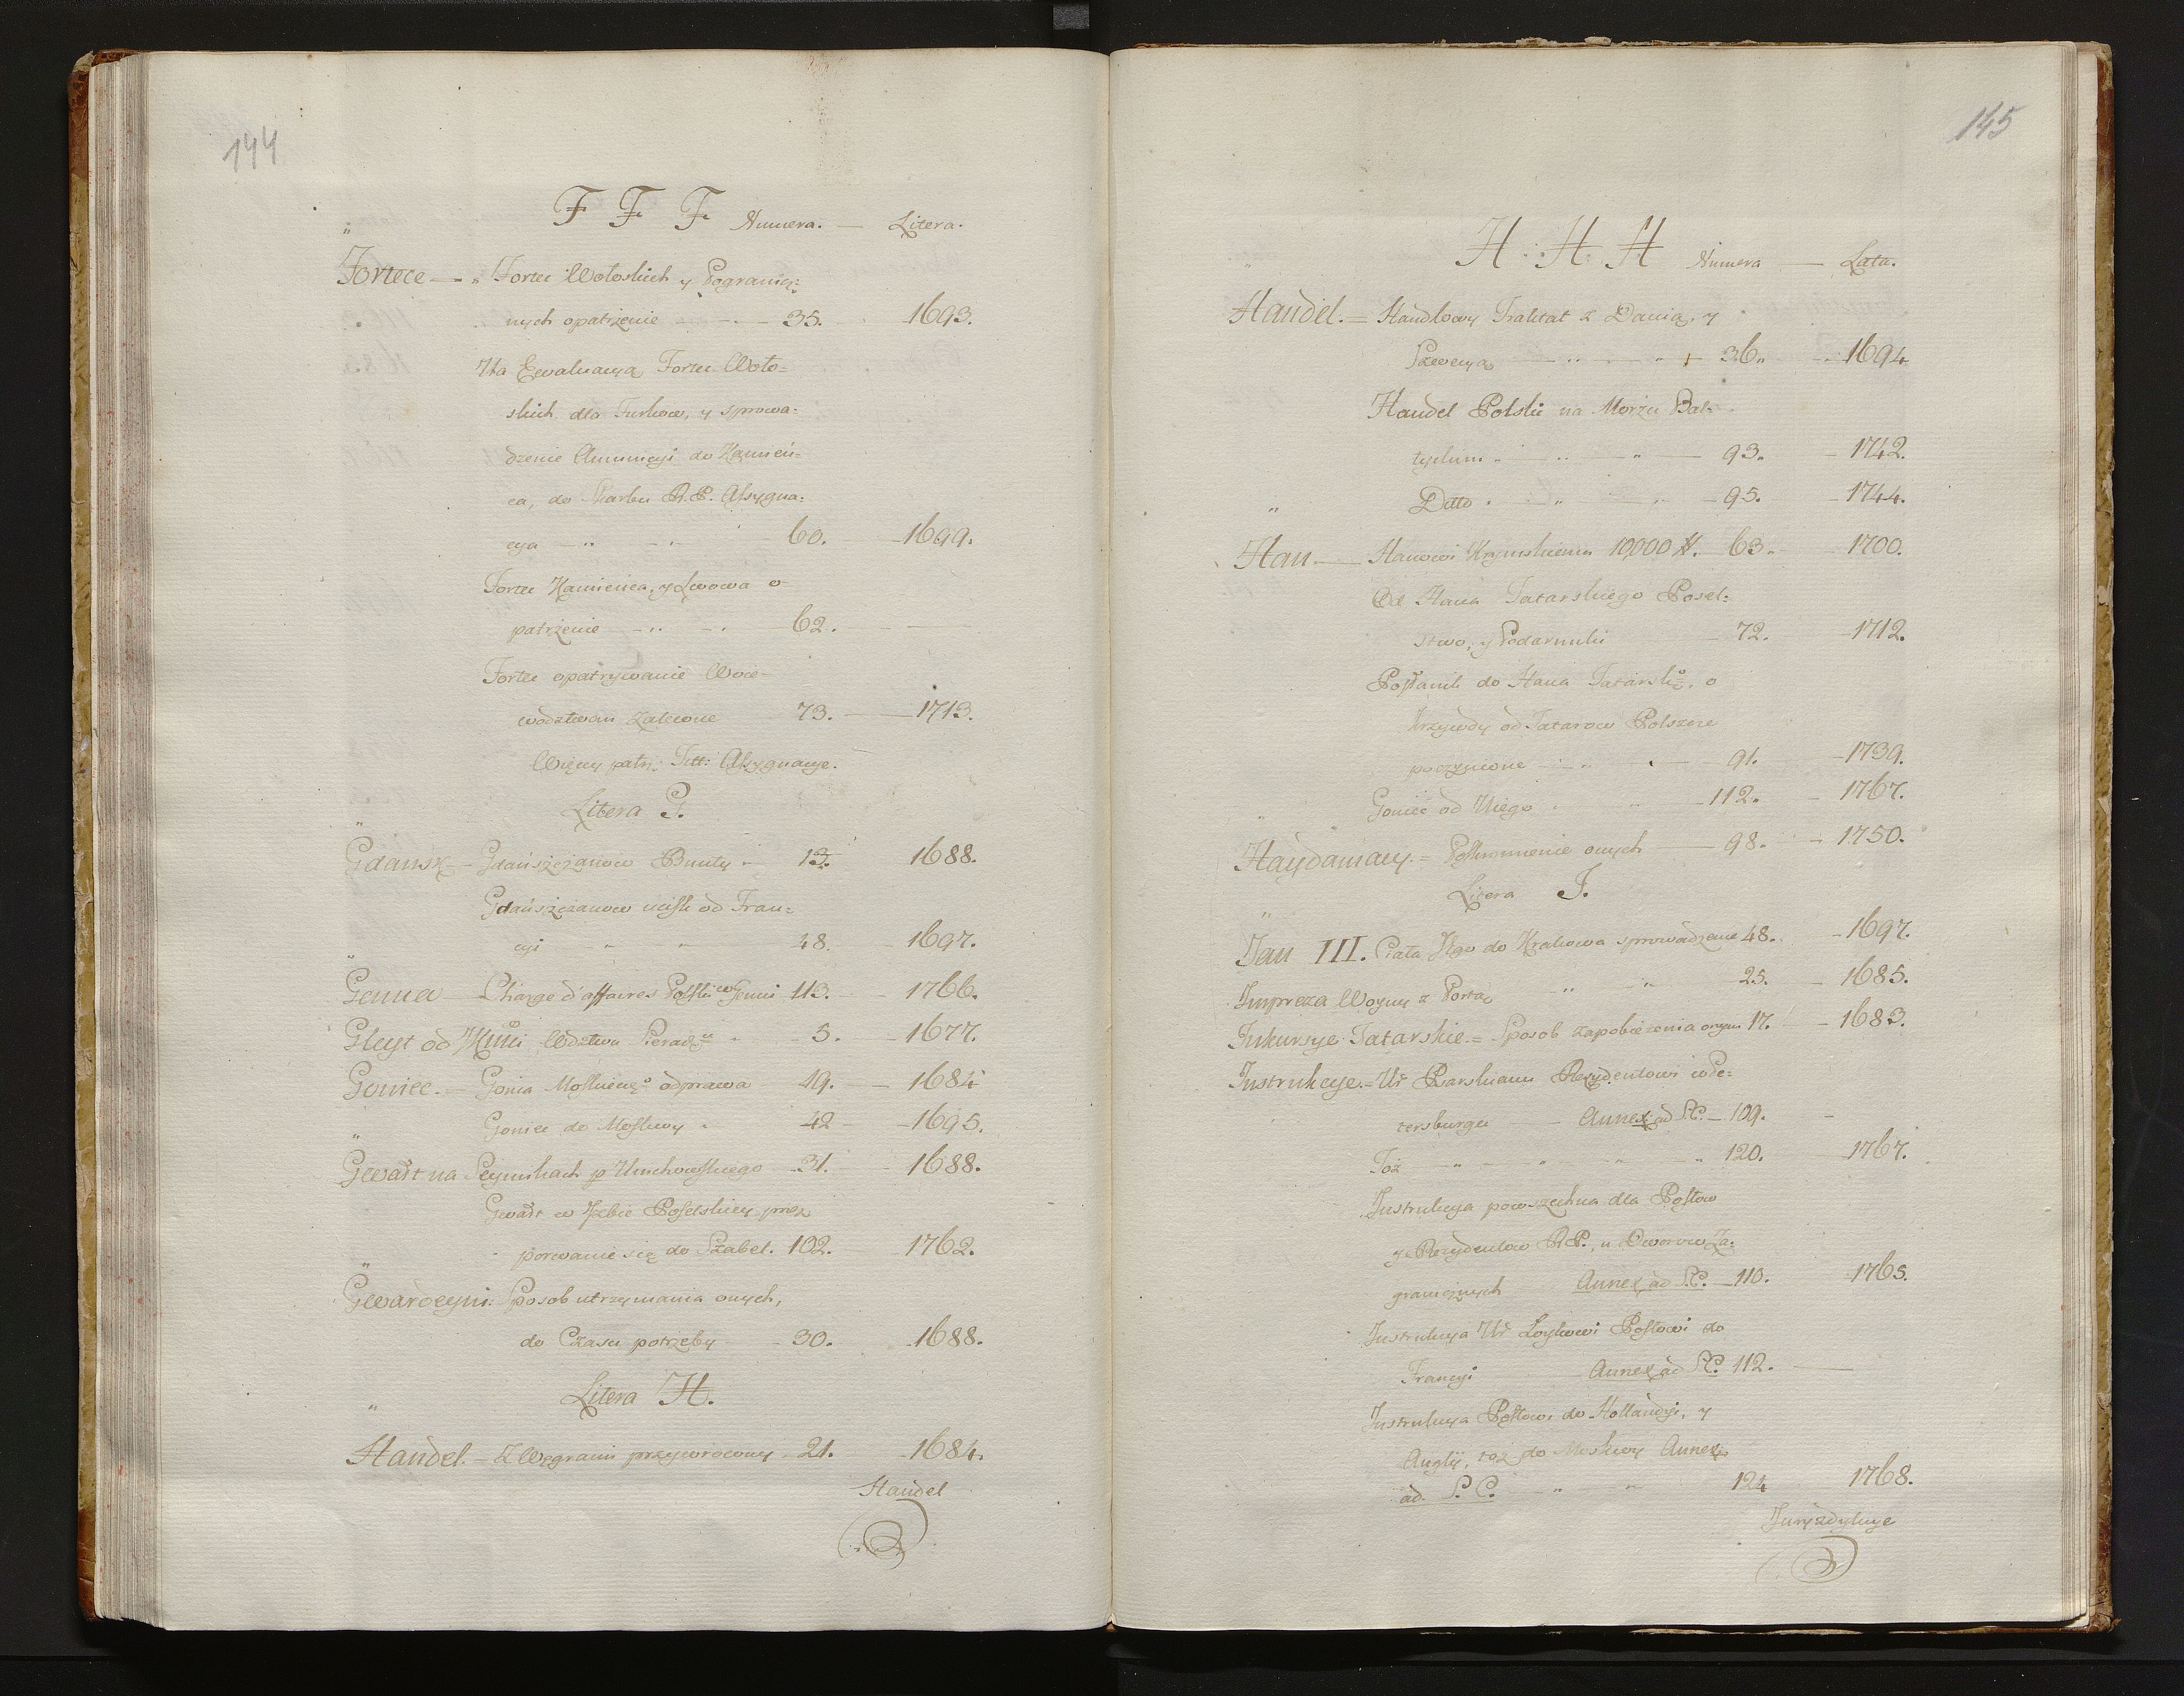 144
F F F Numera. — Litera.
Fortece — Fortec Wołoskich y Pogranicz:
nych opatrzenie — 35. 1693.
Na Ewaluacyą Fortec Woło=
skich dla Turkow, y sprowa:
dzenie Ammunicyi do Kamień=
ca, do Skarbu R. P. Assygna:
cya — 60. — 1699.
Fortec Kamieńca, y Lwowa o=
patrzenie — 62. —
Fortec opatrywanie Woie=
wodztwom zalecone 73. — 1713.
Więcey patrz: Titt: Assygnacye.
Litera G.
Gdansk — Gdańszczanow Bunty 13. 1688.
Gdańszczanow ucisk od Fran=
cyi — 48. — 1697.
Genua — Charge d'affaires Polski w Genui 113. — 1766.
Gleyt od Wdztwa Sieradzgo 5. — 1677.
Goniec. — Gonca Moskiewgo odprawa 19. — 1684
Goniec do Moskwy 42 — 1695.
Gwałt na Seymikach p Umchowskiego 31. — 1688.
Gwałt w Izbie Poselskiey przez
porwanie się do Szabel. 102. 1762.
Gwardcyni. Sposob utrzymania onych,
do Czasu potrzeby — 30. 1688.
Litera H.
Handel. — Z Węgrami przywrocony 21. 1684.
Handel
145
H. H. H Numera — Lata.
Handel. = Handlowy Traktat z Danią, y
Szwecyą — 36. — 1694
Handel Polski na Morzu Bal=
tyckim — 93. — 1742.
Ditto — 95. — 1744.
Han — Hanowi Krymskiemu 10,000 #. 63. 1700.
Od Hana Tatarskiego Posel:
stwo, y Podarunki — 72. — 1712.
Posłanik do Hana Tatarskgo, o
krzywdy od Tatarow Polszcze
poczynione — 91. — 1739.
Goniec od Niego — 112. — 1767.
Haydamacy. = Poskromienie onych — 98. — 1750.
Litera J.
Jan III. Ciała Jgo do Krakowa sprowadzenie 48. — 1697.
Impreza Woyny z Portą 25. — 1685.
Inkursye Tatarskie. = Sposob zapobieżenia onym 17. — 1683.
Instrukcye. = Ur Psarskiemu Rezydentowi w Pe=
tersburgu — Annex ad S.C. — 109. —
Toż — 120. 1767.
Instrukcya powszechna dla Posłow
y Rezydentow R.P., u Dworow Za:
granicznych Annex ad S.C. — 110. 1765.
Instrukcya Ur Loykowi Posłowi do
Francyi — Annex ad S.C. 112. —
Instrukcya Posłowi do Hollandyi, y
Anglij, toż do Moskwy Annex
ad. S. C. — 124 1768.
Juryzdykcye